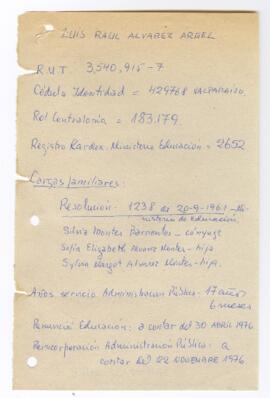 LUIS RAUL ALVAREZ ARGEL
R.U.T. 3,540,915-7
Cédula Identidad = 429768 VALPARAISO.
Rol Contraloría = 183.179
Registro Kardex. Ministerio Educación = 2652
Cargas familiares:
Resolución - 1238 de 20-9-1961 - Mi-
nisterio de educación
Silvia Montes Barrientos - cónyuge
Sofía Elizabeth Alvarez Montes - hija
Sylvia Margot Alvarez Montes - hija.
Años servicio Administracion Pública - 17 años
6 meses
Renunció Educación: a contar del 30 ABRIL 1976
Reincorporación Administración Pública: a
contar del 22 NOVIEMBRE 1976